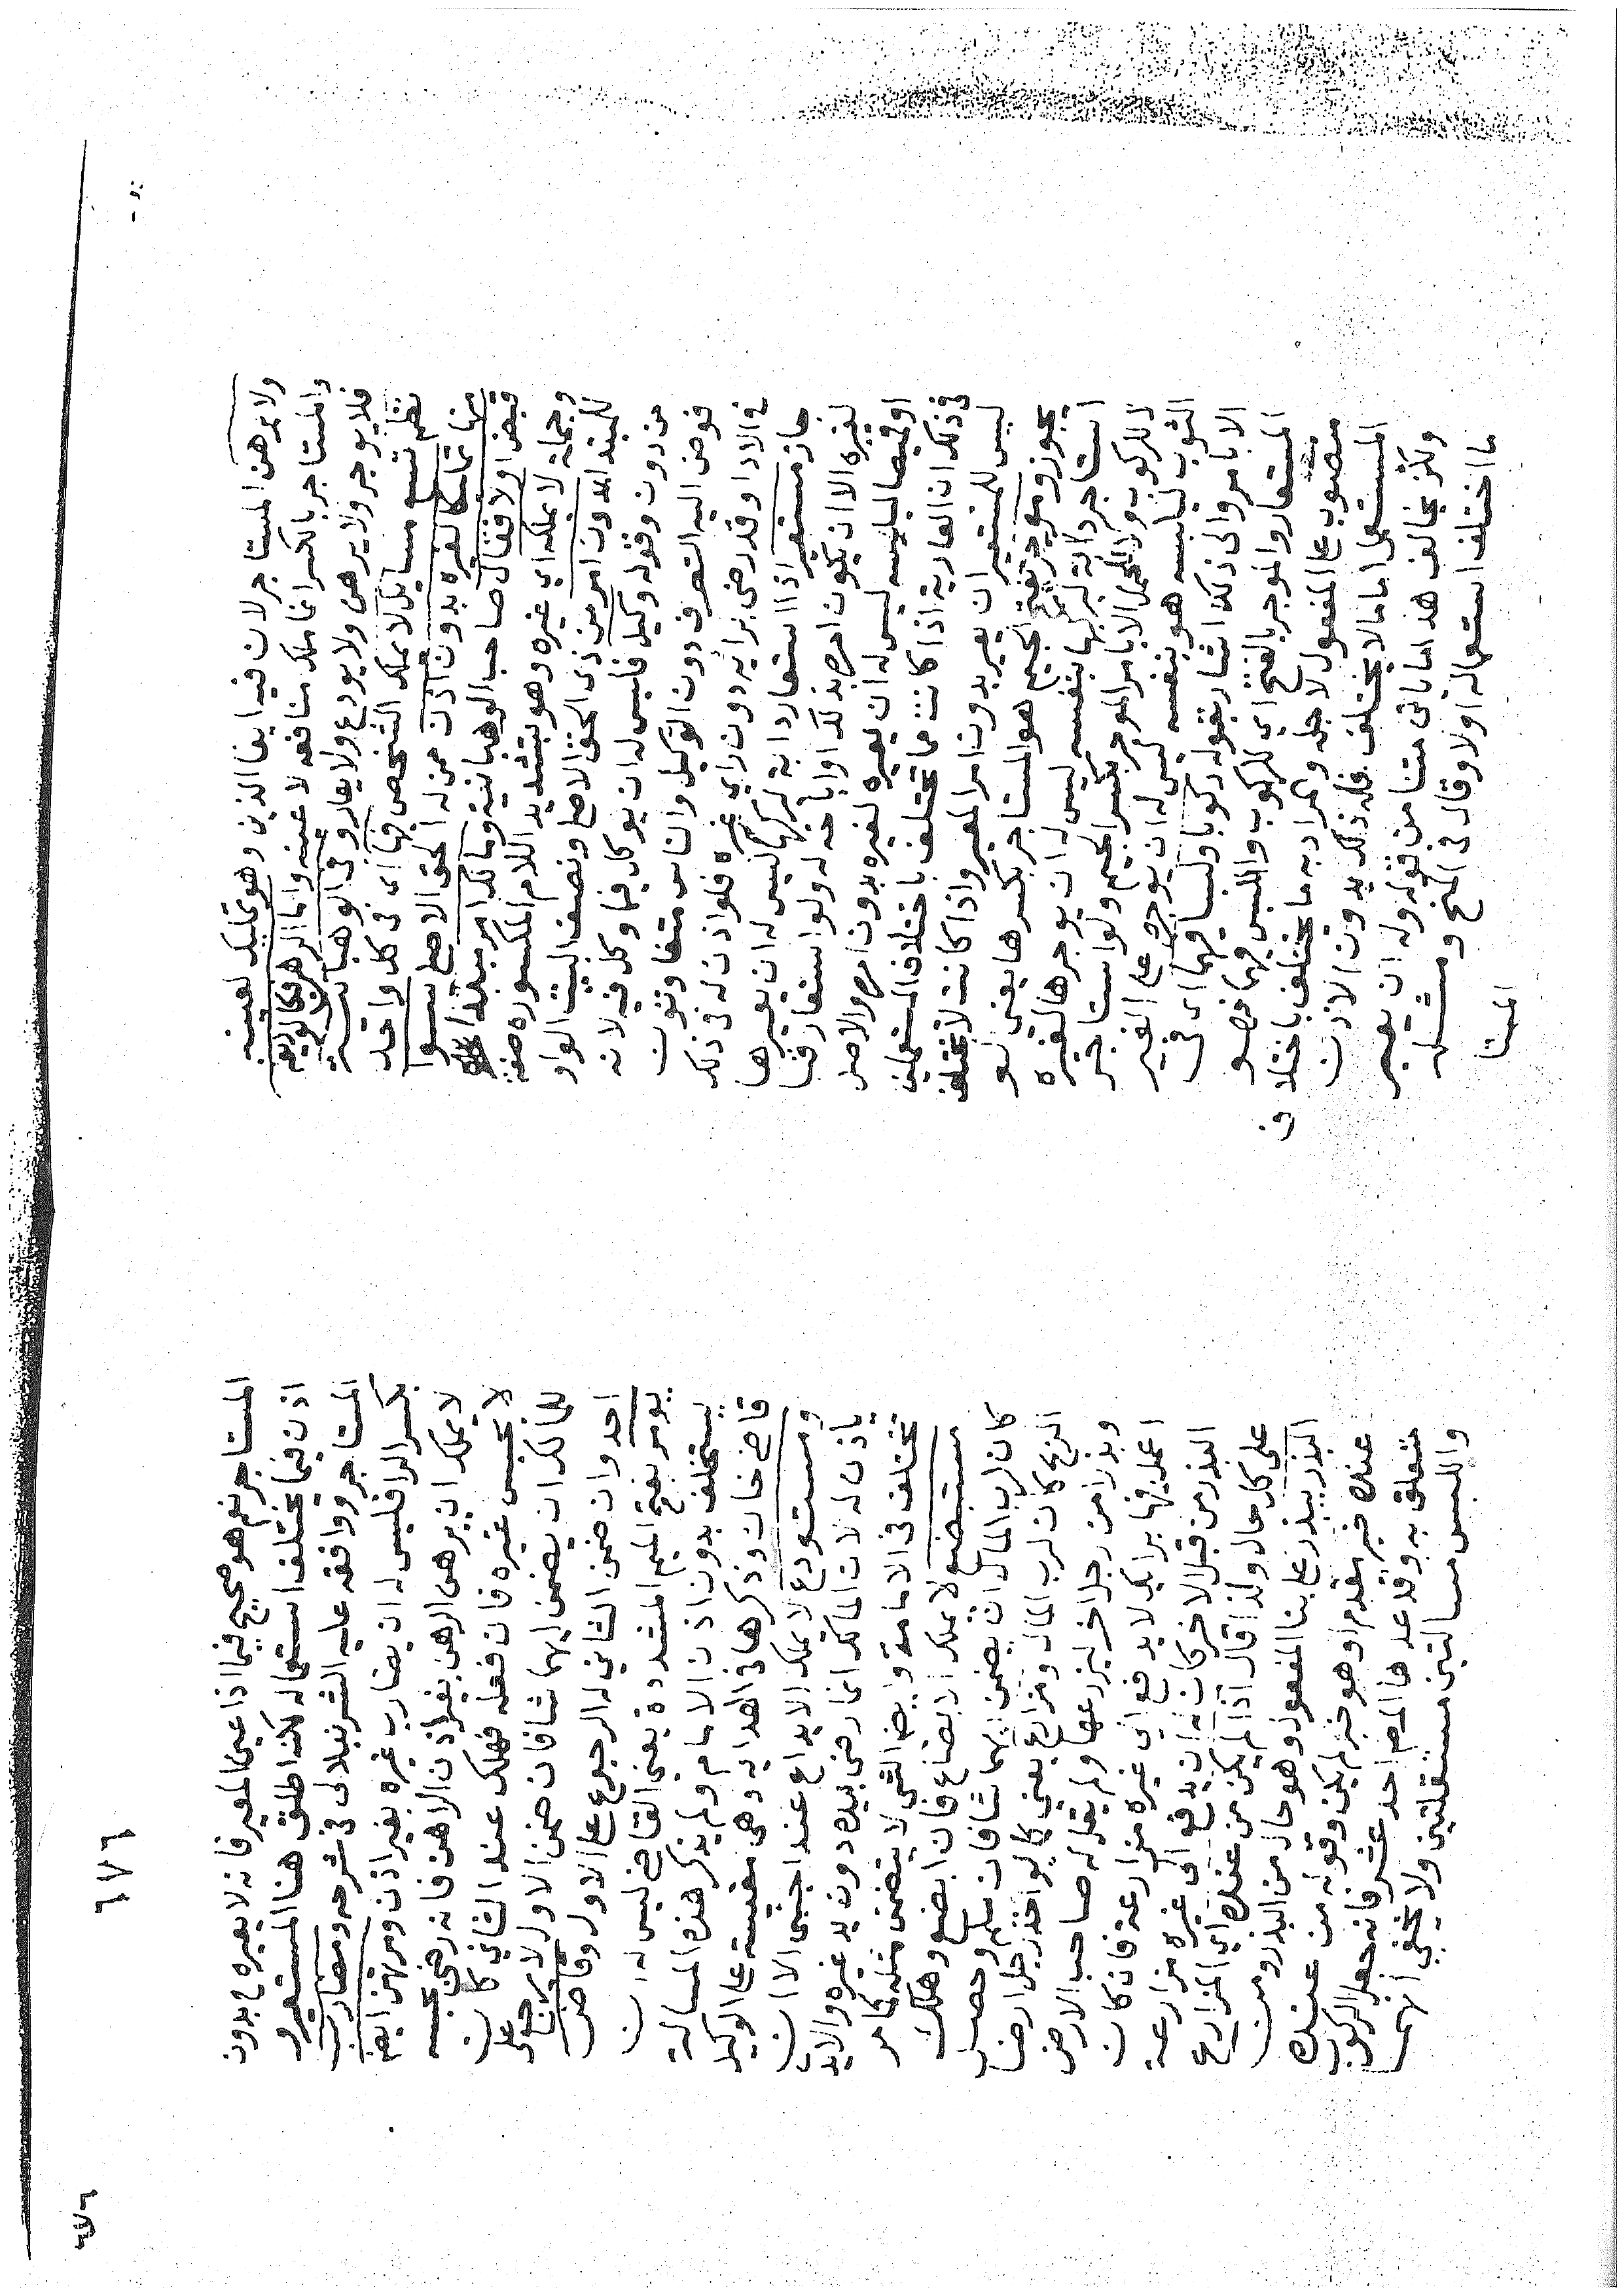 ولا يرهن المستاجر لان فيه ايفا الدين وهو تمليك لعينه
والمستاجر بالكسر انما ملك منافعه لا عينه واما الرهن فكالوديعة
فلا يوجر ولا يرهن ولا يودع ولا يعار وفي الوهبانية
نظم تسع مسايل لا يملك الشخص فيها اي في كل واحد
منها تمليكا لغيره بدون اذن من له الحق الاصلي سوا
قبض اولا فقال صاحب الوهبانية ومالك امر
وجملة لا يملكه اي غيره وهو بتشديد اللام المكسورة صفة
للمبتدا بدون امر من ذي الحق الاصلي ونصف البيت الواو
من دون وقوله وكيل فليس له ان يوكل فيما وكل فيه لانه
فوض اليه التصرف دون التوكيل والناس متفاوتون
في الادا وقد رضي برايه دون راي غيره فلو اذن له في ذلك
جاز مستعير اذا استعار دابة ليركبها ليس له ان يعيرها
لغيره الا ان يكون امره بذلك او اباحه له ولو استعار قبا
او قميصا ليلبسه ليس له ان يعيره لغيره بدون امره والاصل
في ذلك ان العارية اذا كانت مما تختلف باختلاف المستعملين
ليس للمستعير ان يعير بدون امر المعير واذا كانت لا تختلف
يجوز وموجر بفتح الجيم هو المستاجر بكسرها يعني لو
استاجر دابة ليركبها بنفسه ليس له ان يوجرها لغيره
لا للركوب ولا للحمل الا بامر الموجر بكسر الجيم ولو استاجر
الثوب ليلبسه هو بنفسه ليس له ان يوجره على الغير
الا بامر والى ذلك اشار بقوله ركوبا ولبسا فيهما اي في
المستعار والموجر بالفتح اي للركوب واللبس فيهما فهو
منصوب على المفعول لاجله والمراد به ما يختلف باختلاف
المستعمل اما ما لا يختلف فله ذلك بدون الاذن
ولكن يخالف هذا ما ياتي متنا من قوله وله ان يعير
ما اختلف استعماله اولا وقال في المنح ومشله
المستا
٦٧٦
المستاجر نعم هو صحيح فيما اذا عين المعير فانه لا يعيره بدون
اذن فيما يختلف استعماله لكنه اطلق هنا المستعير و
المستاجر ووافقه عليه الشرنبلالي في شرحه ومضارب
بكسر الرا فليس له ان يضارب غيره بغير اذن ومرتهن ايضا
لا يملك ان يرهن الرهن بغير اذن الراهن فانه رضي بحبسه
لا بحبس غيره فان فعله فهلك عند الثاني كان
للمالك ان يضمن ايهما شا فان ضمن الاول لا يرجع على
احد وان ضمن الثاني له الرجوع على الاول وقاض
يومر بفتح الميم المشددة يعني القاضي ليس له ان
يستخلف بدون اذن الامام ولم يذكر هذه المسالة
قاضي خان وذكرها في الهداية وهي مقيسة على الوكيل
ومستودع لا يملك الايداع عند اجنبي الا ان
ياذن له لان المالك انما رضي بيده دون يد غيره والايد
تختلف في الامانة وايضا الشي لا يتضمن مثله كما مر
مستبضع لا يملك الابضاع فان ابضع وهلك
كان لرب المال ان يضمن ايهما شا فان سلم وحصل
الربح كان لرب المال ومزارع يعني كما لو اخذ رجل ارضا
وبذرا من رجل اخر ليزرعها ولم يقل له صاحب الارض
اعمل فيها برايك لا يدفع اي غيره مزارعة فان كان
البذر من قبل الاخر كان له ان يدفع الى غيره مزارعة
على كل حال ولذا قال اذا لم يكن من عنده اي المزارع
البذر يبذر على بنا المفعول وهو حال من البذر ومن
عنده خبر مقدم او هو خبر لم يكن وقوله من عنده
متعلق به وقد عدها الم احد عشر فانه جعل الركوب
واللبس مسالتين مستقلتين ولا يخفى انهما
٦٧٦